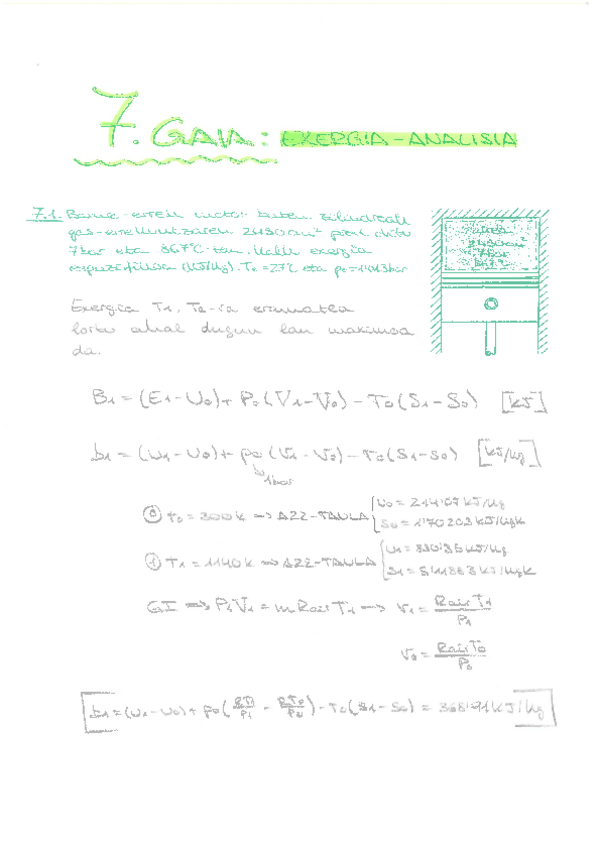 7. GAIA: EXERGIA-ANALISIA
7.1. Barne-errek motor baten zilindroak
gas-errekuntzaren 2450 cm³ ditu
7bar eta 867°C-tan. Kalk. exergia
espezifikoa (kJ/kg). T₀=27°C eta p₀=1'013bar
7bar
867°C
Exergia T₁, T₀-ra eramatea
lortu ahal dugun lan maximoa
da.
B₁ = (E₁-U₀)+ P₀(V₁-V₀) - T₀(S₁-S₀) [kJ]
b₁ = (u₁-u₀)+ p₀(v₁-v₀)-T₀(s₁-s₀) [kJ/kg]
1bar
⓪ T₀ = 300k ⇒ AZZ-TAULA { u₀ = 214'07 kJ/kg
s₀ = 1'70203 kJ/kgk
① T₁ = 1140k ⇒ AZZ-TAULA { u₁ = 880'35 kJ/kg
s₁ = 3'11883 kJ/kgk
GI ⇒ P₁V₁ = mRair T₁ → v₁ = Rair T₁ / P₁
v₀ = Rair T₀ / P₀
b₁ = (u₁-u₀)+ p₀(RT₁/P₁ - RT₀/P₀)-T₀(s₁-s₀) = 368'91 kJ/kg